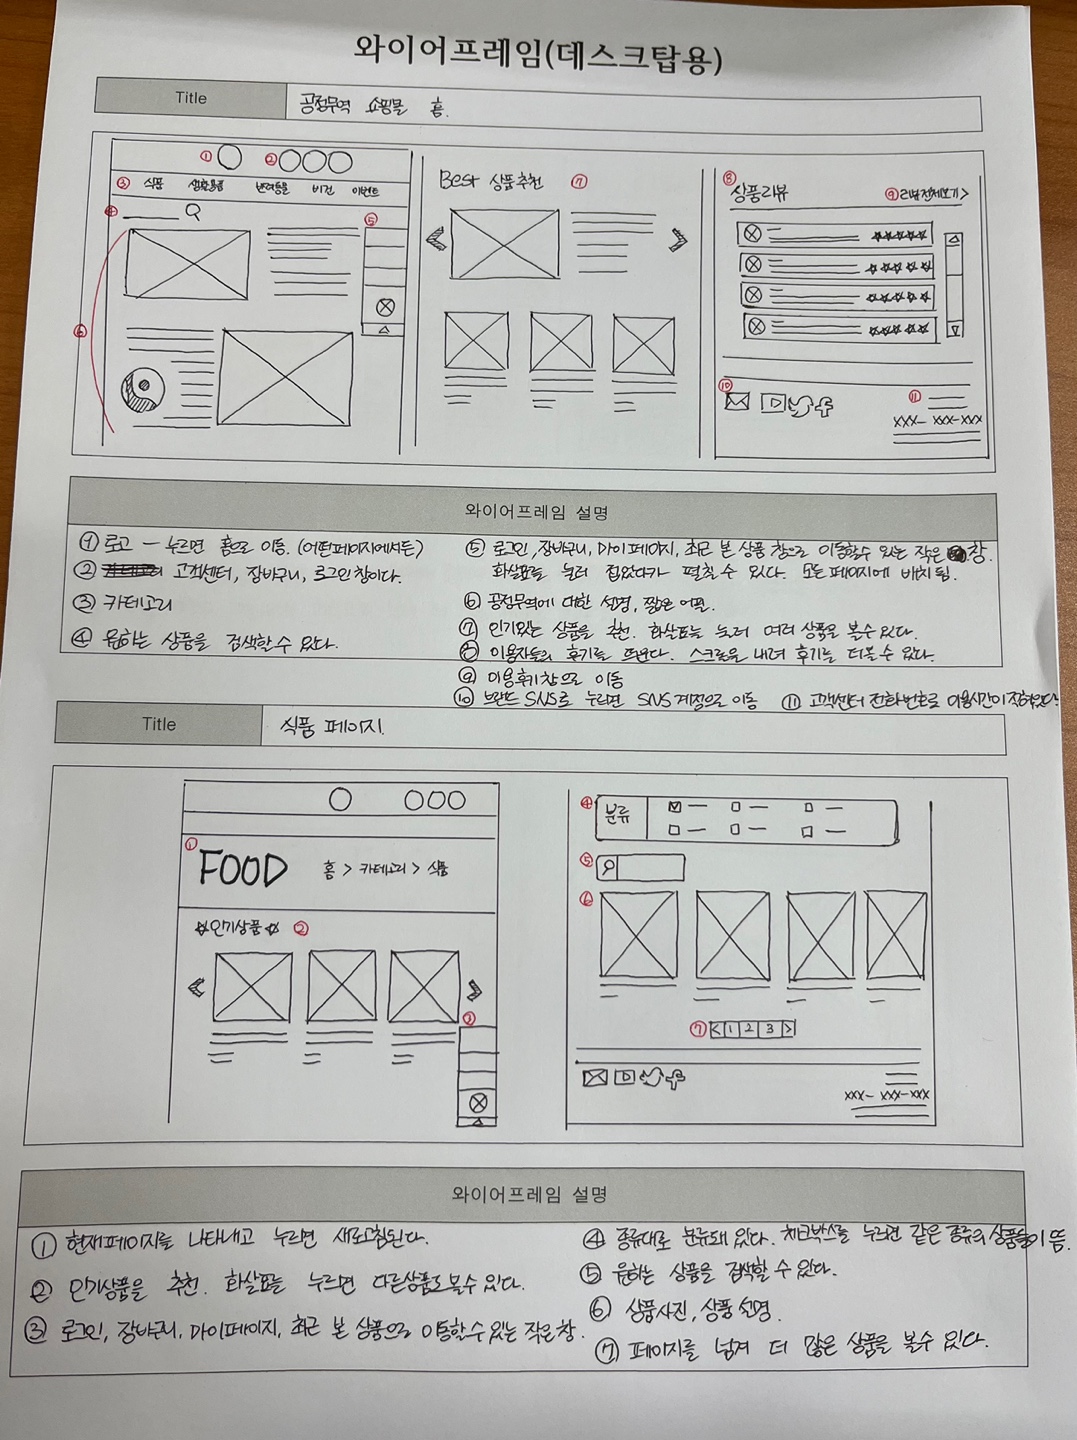 와이어프레임(데스크탑용)
Title
공정무역 쇼핑몰 홈.
① ②
③ 식품 생활용품 반려동물 비건 이벤트
④ ⑤
⑥
Best 상품추천 ⑦
⑧
상품리뷰 ⑨ 리뷰전체보기>
⑩ ⑪
XXX- XXX-XXX
와이어프레임 설명
① 로고 — 누르면 홈으로 이동. (어떤페이지에서든)
② 고객센터, 장바구니, 로그인창이다.
③ 카테고리
④ 원하는 상품을 검색할수 있다.
⑤ 로그인, 장바구니, 마이페이지, 최근 본 상품 창으로 이동할수 있는 작은 창.
화살표를 눌러 접었다가 펼칠수 있다. 모든페이지에 배치됨.
⑥ 공정무역에 대한 설명, 짧은 어필.
⑦ 인기있는 상품을 추천. 화살표를 눌러 여러 상품을 볼수있다.
⑧ 이용자들의 후기를 띄운다. 스크롤을 내려 후기를 더볼 수 있다.
⑨ 이용후기창으로 이동
⑩ 브랜드 SNS로 누르면 SNS 계정으로 이동 ⑪ 고객센터 전화번호로 이용시간이 적혀있다.
Title
식품 페이지.
①
FOOD 홈 > 카테고리 > 식품
인기상품 ②
③
④ 분류
⑤
⑥
⑦ < 1 2 3 >
XXX- XXX-XXX
와이어프레임 설명
① 현재페이지를 나타내고 누르면 새로고침된다.
② 인기상품을 추천. 화살표를 누르면 다른상품도볼수있다.
③ 로그인, 장바구니, 마이페이지, 최근 본 상품으로 이동할수있는 작은창.
④ 종류대로 분류돼 있다. 체크박스를 누르면 같은 종류의 상품들이 뜸.
⑤ 원하는 상품을 검색할 수 있다.
⑥ 상품사진, 상품 설명.
⑦ 페이지를 넘겨 더 많은 상품을 볼수있다.